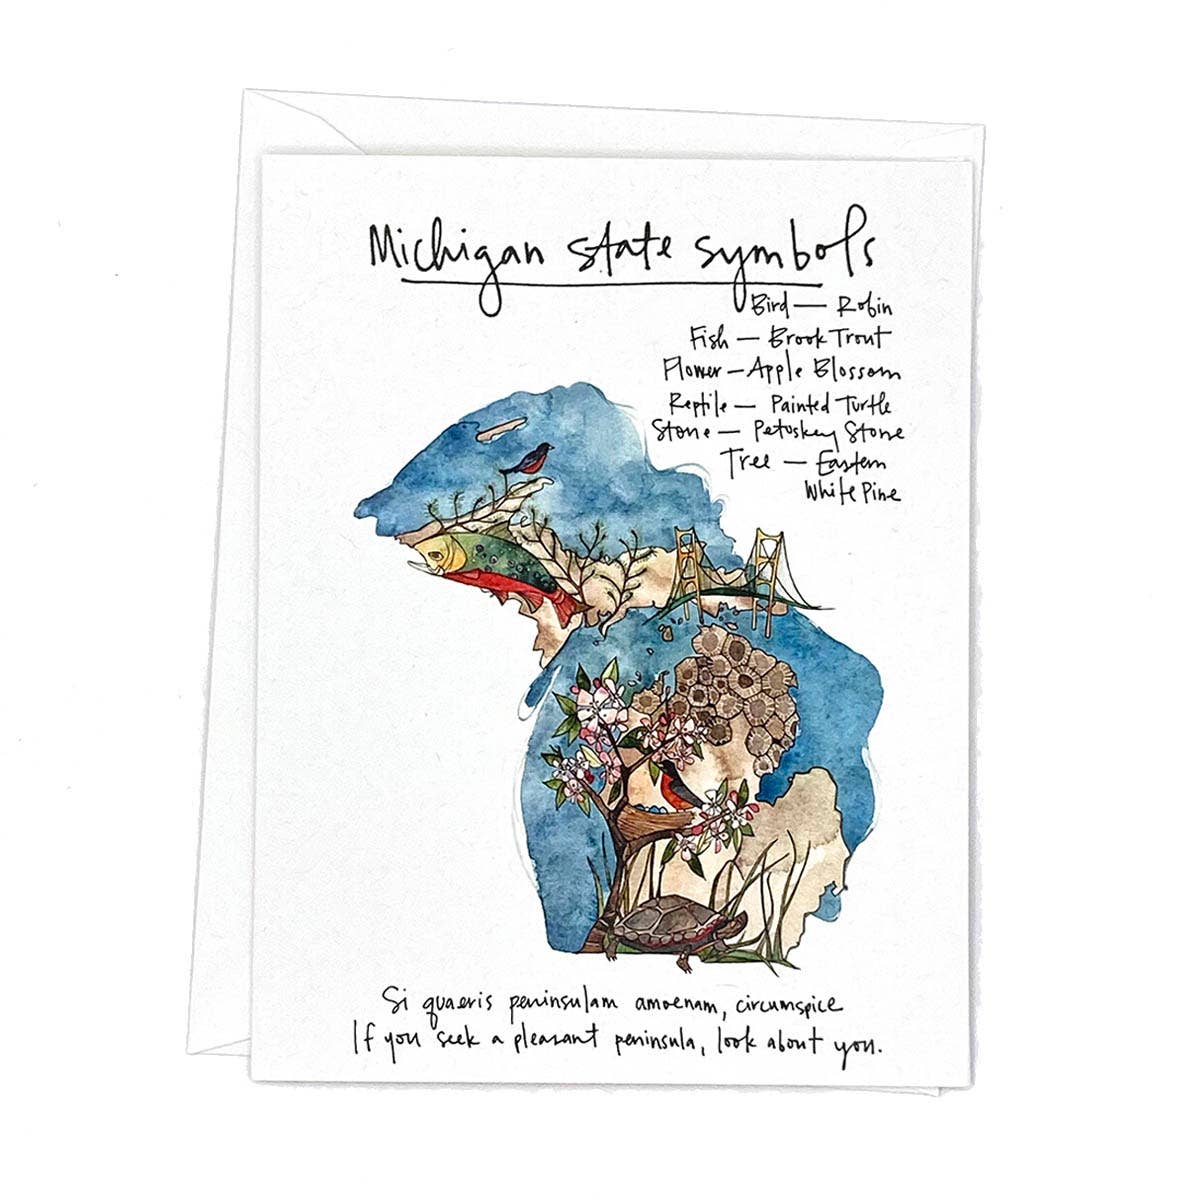 Michigan state symbols
Bird — Robin
Fish — Brook Trout
Flower — Apple Blossom
Reptile — Painted Turtle
Stone — Petoskey Stone
Tree — Eastern
White Pine
Si quaeris peninsulam amoenam, circumspice
If you seek a pleasant peninsula, look about you.